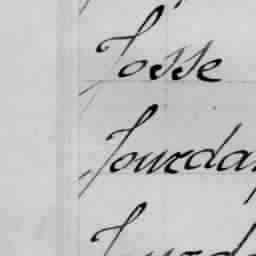 Josse
Jourda